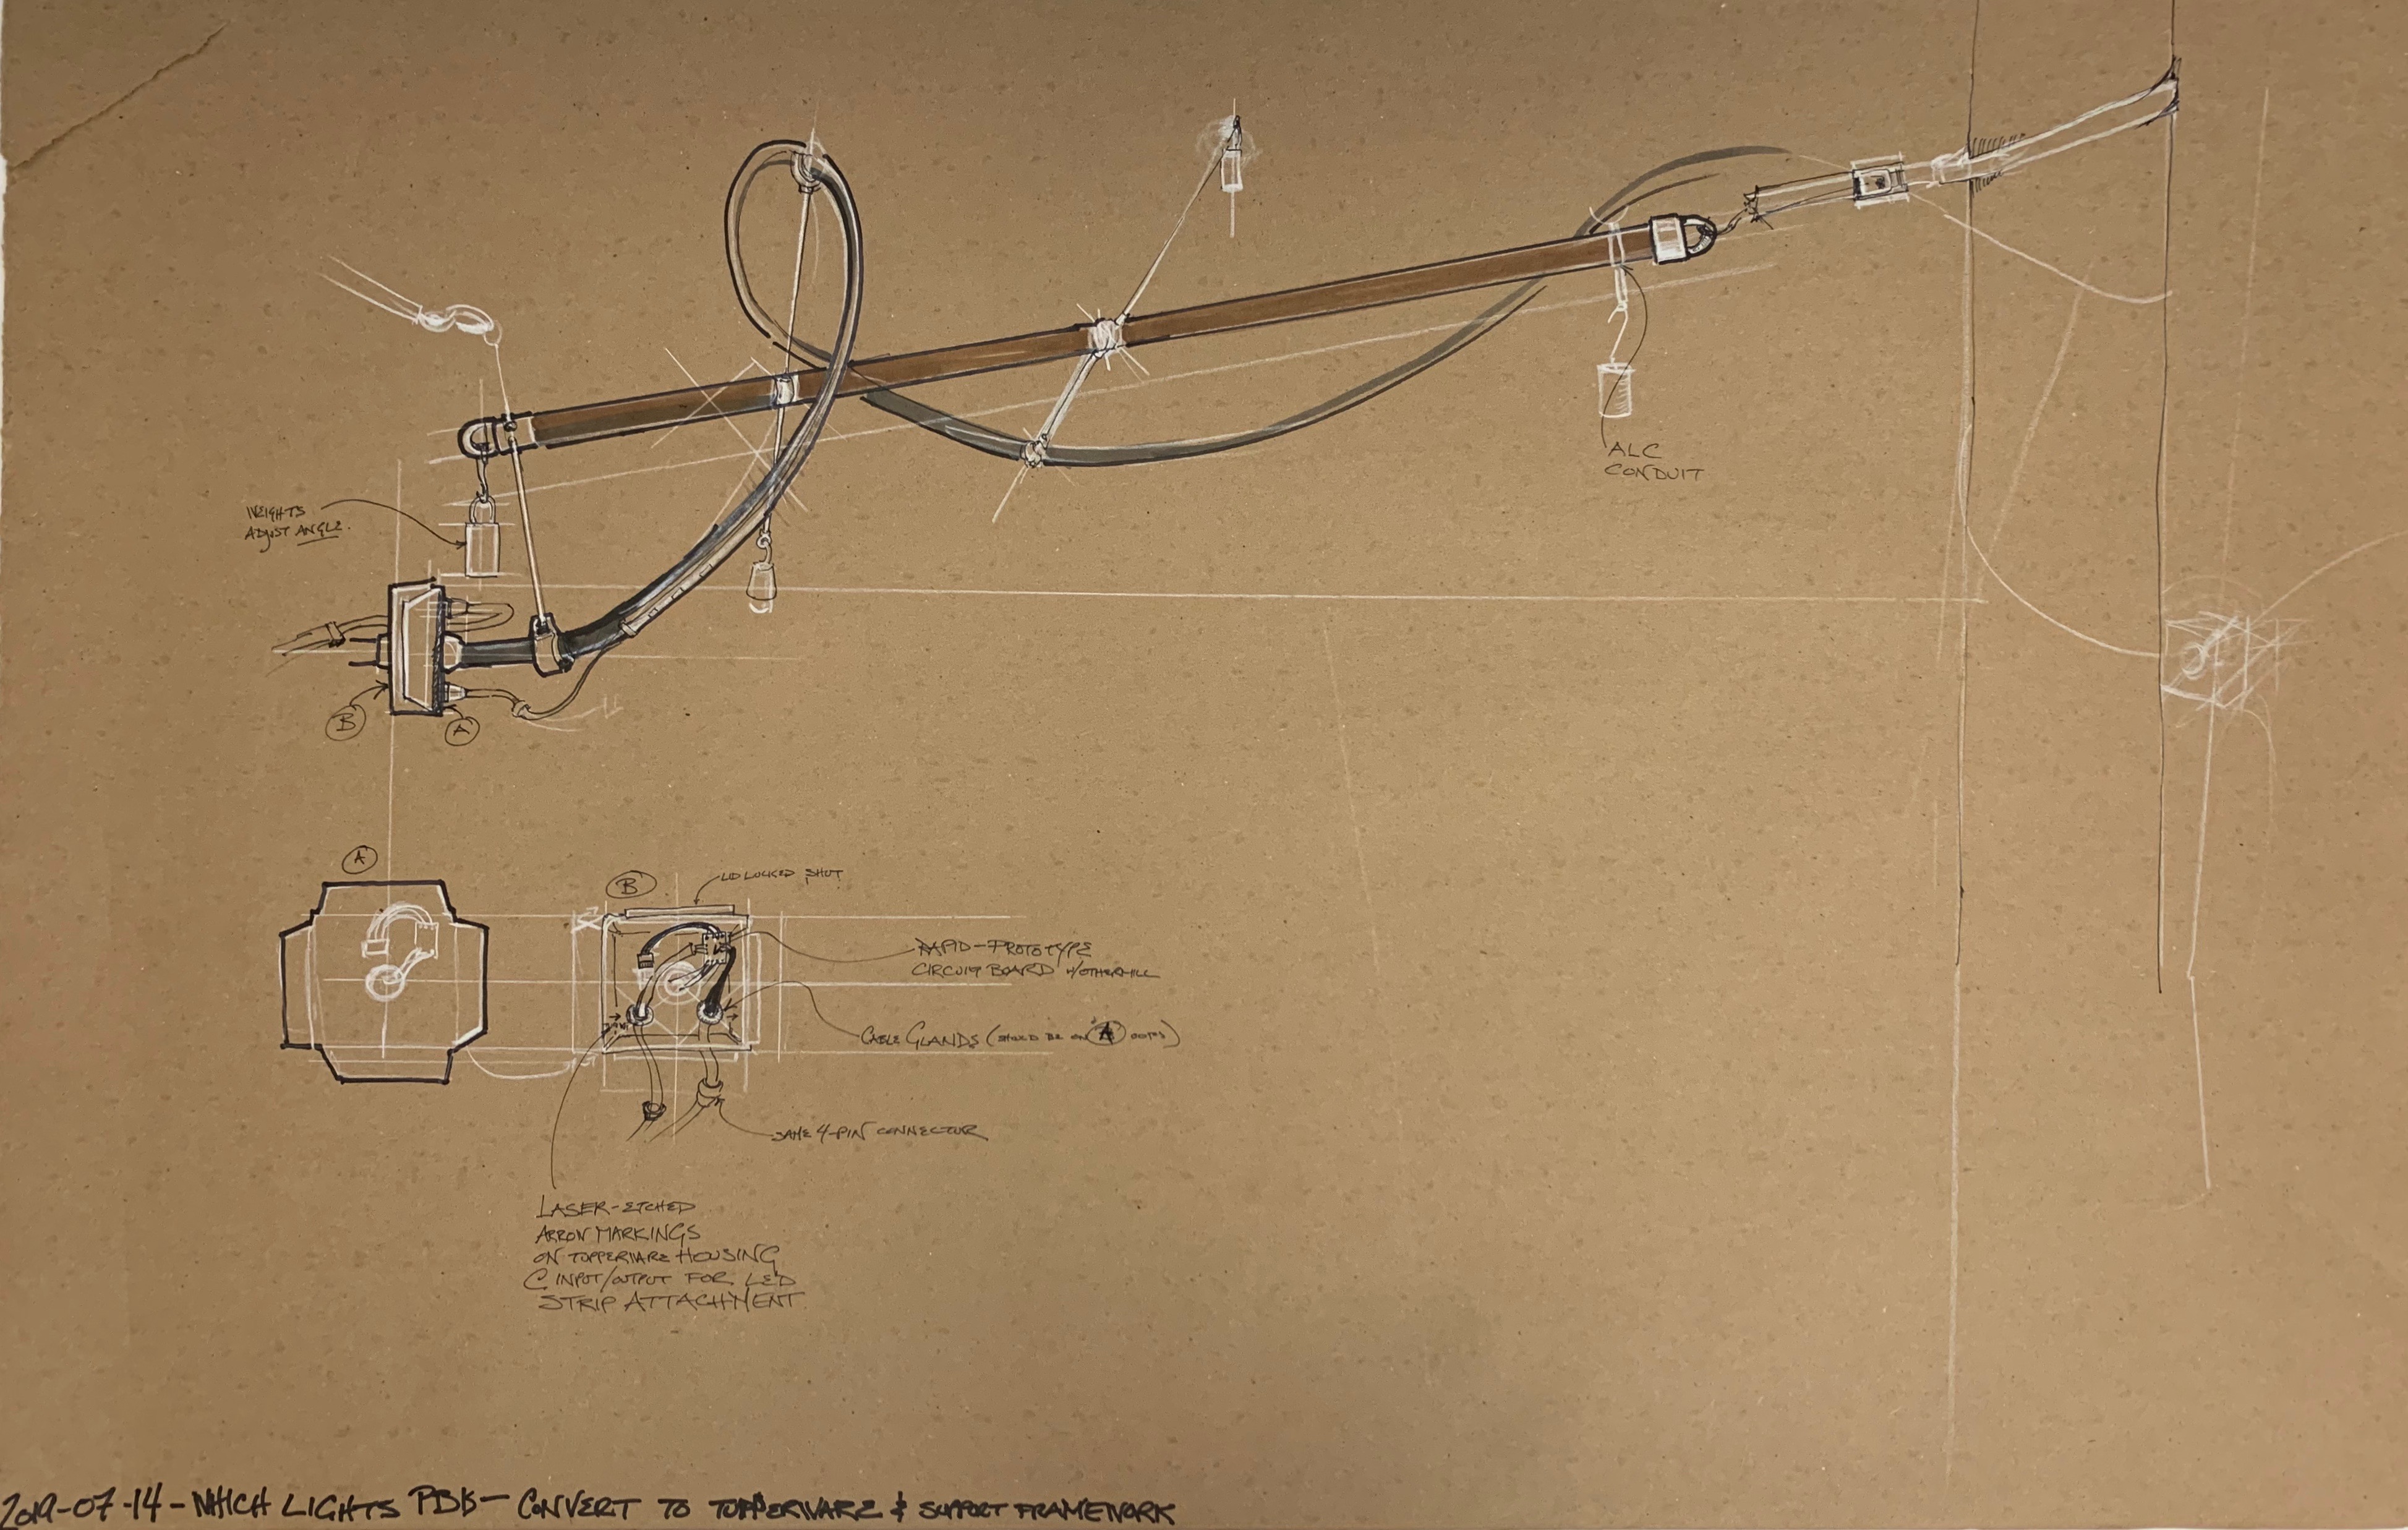 ALC
CONDUIT
WEIGHTS
ADJUST ANGLE.
B
A
A
B
LID LOCKED SHUT
RAPID-PROTOTYPE
CIRCUIT BOARD W/OTHERMILL
CABLE GLANDS (SHOULD BE ON "A" OOPS)
SAME 4-PIN CONNECTOR
LASER-ETCHED
ARROW MARKINGS
ON TUPPERWARE HOUSING
C INPUT/OUTPUT FOR LED
STRIP ATTACHMENT.
2019-07-14 - NHICH LIGHTS PBK - CONVERT TO TUPPERWARE & SUPPORT FRAMEWORK